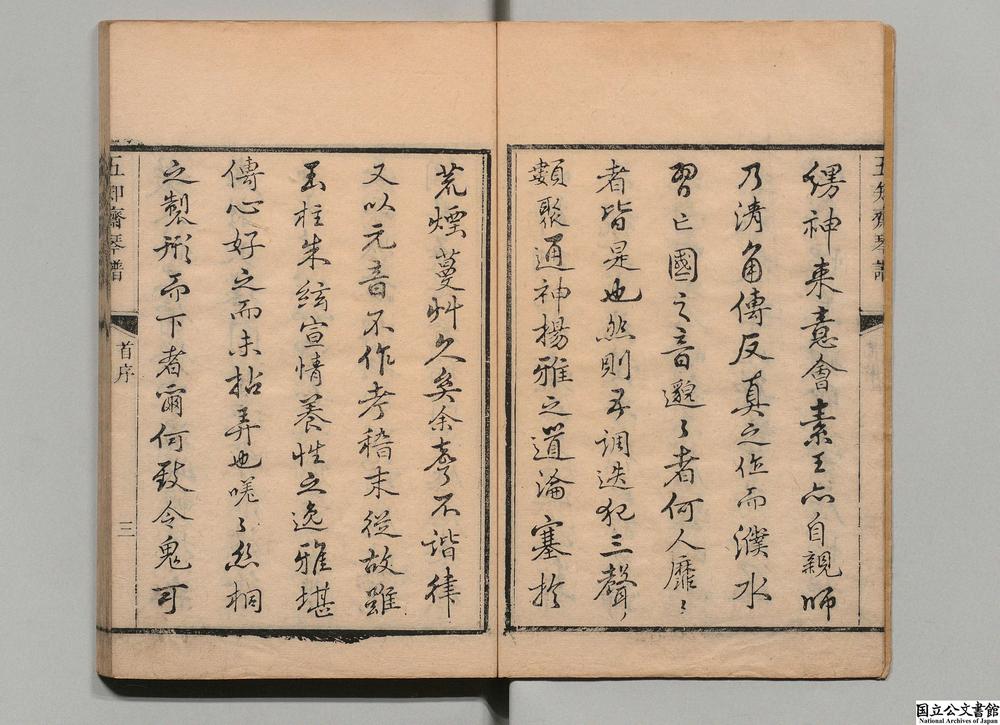 五知齋琴譜
繆神来意會素王亦自親師
乃清角傳反真之作而濮水
習亡國之音邈〻者何人靡〻
者皆是也然則五調迭犯三聲
類聚通神揚雅之道淪塞於
荒煙蔓艸久矣余耆不諧律
又以元音不作考稽末從故雖
玉柱朱絃宣情養性之逸雅堪
傳心好之而未拈弄也嗟〻絲桐
之製形而下者爾何致令鬼可
五知齋琴譜
首序
三
国立公文書館
National Archives of Japan